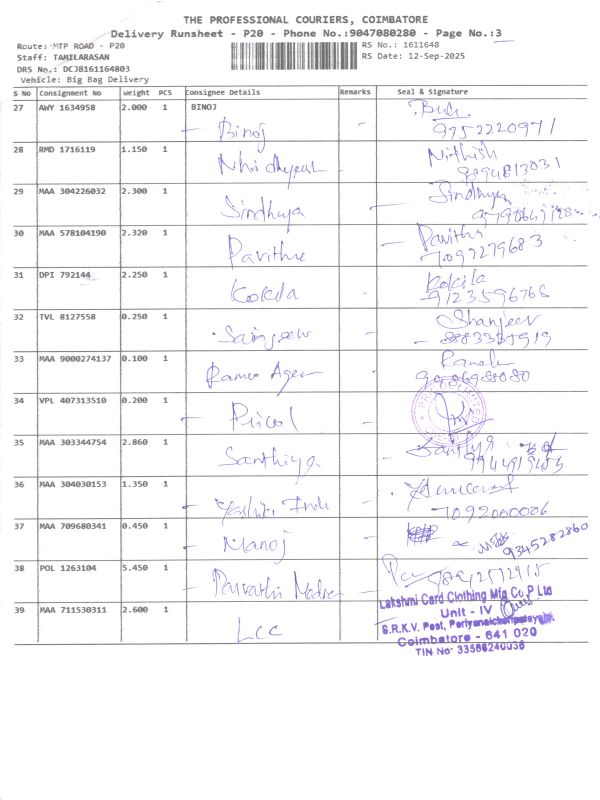 THE PROFESSIONAL COURIERS, COIMBATORE
Delivery Runsheet - P20 - Phone No.:9047080280 - Page No.:3
Route: MTP ROAD - P20 RS No.: 1611648
Staff: TAMILARASAN RS Date: 12-Sep-2025
DRS No.: DCJB161164803
Vehicle: Big Bag Delivery
S No Consignment No Weight PCS Consignee Details Remarks Seal & Signature
27 AWY 1634958 2.000 1 BINOJ
Binoj 9752220971
28 RMD 1716119 1.150 1 Nithish
8894813031
29 MAA 304226032 2.300 1 Sindhuja Sindhuja
30 MAA 578104190 2.320 1 Pavithra Pavithra
7092279683
31 DPI 792144 2.250 1 Kokila Kokila
9123596766
32 TVL 8127558 0.250 1 Sanjeev Shanjeev
8883335919
33 MAA 9000274137 0.100 1 Ramco Agen
9986988080
34 VPL 407313510 0.200 1 Pricol
35 MAA 303344754 2.860 1 Santhiya Santhiya
9944919455
36 MAA 304030153 1.350 1 Yashika
7092000006
37 MAA 709680341 0.450 1 Manoj 9345282860
38 POL 1263104 5.450 1 Parvathi
39 MAA 711530311 2.600 1 LCC
Lakshmi Card Clothing Mfg Co P Ltd
Unit - IV
S.R.K.V. Post, Periyanaickenpalayam
Coimbatore - 641 020
TIN No 33566240036